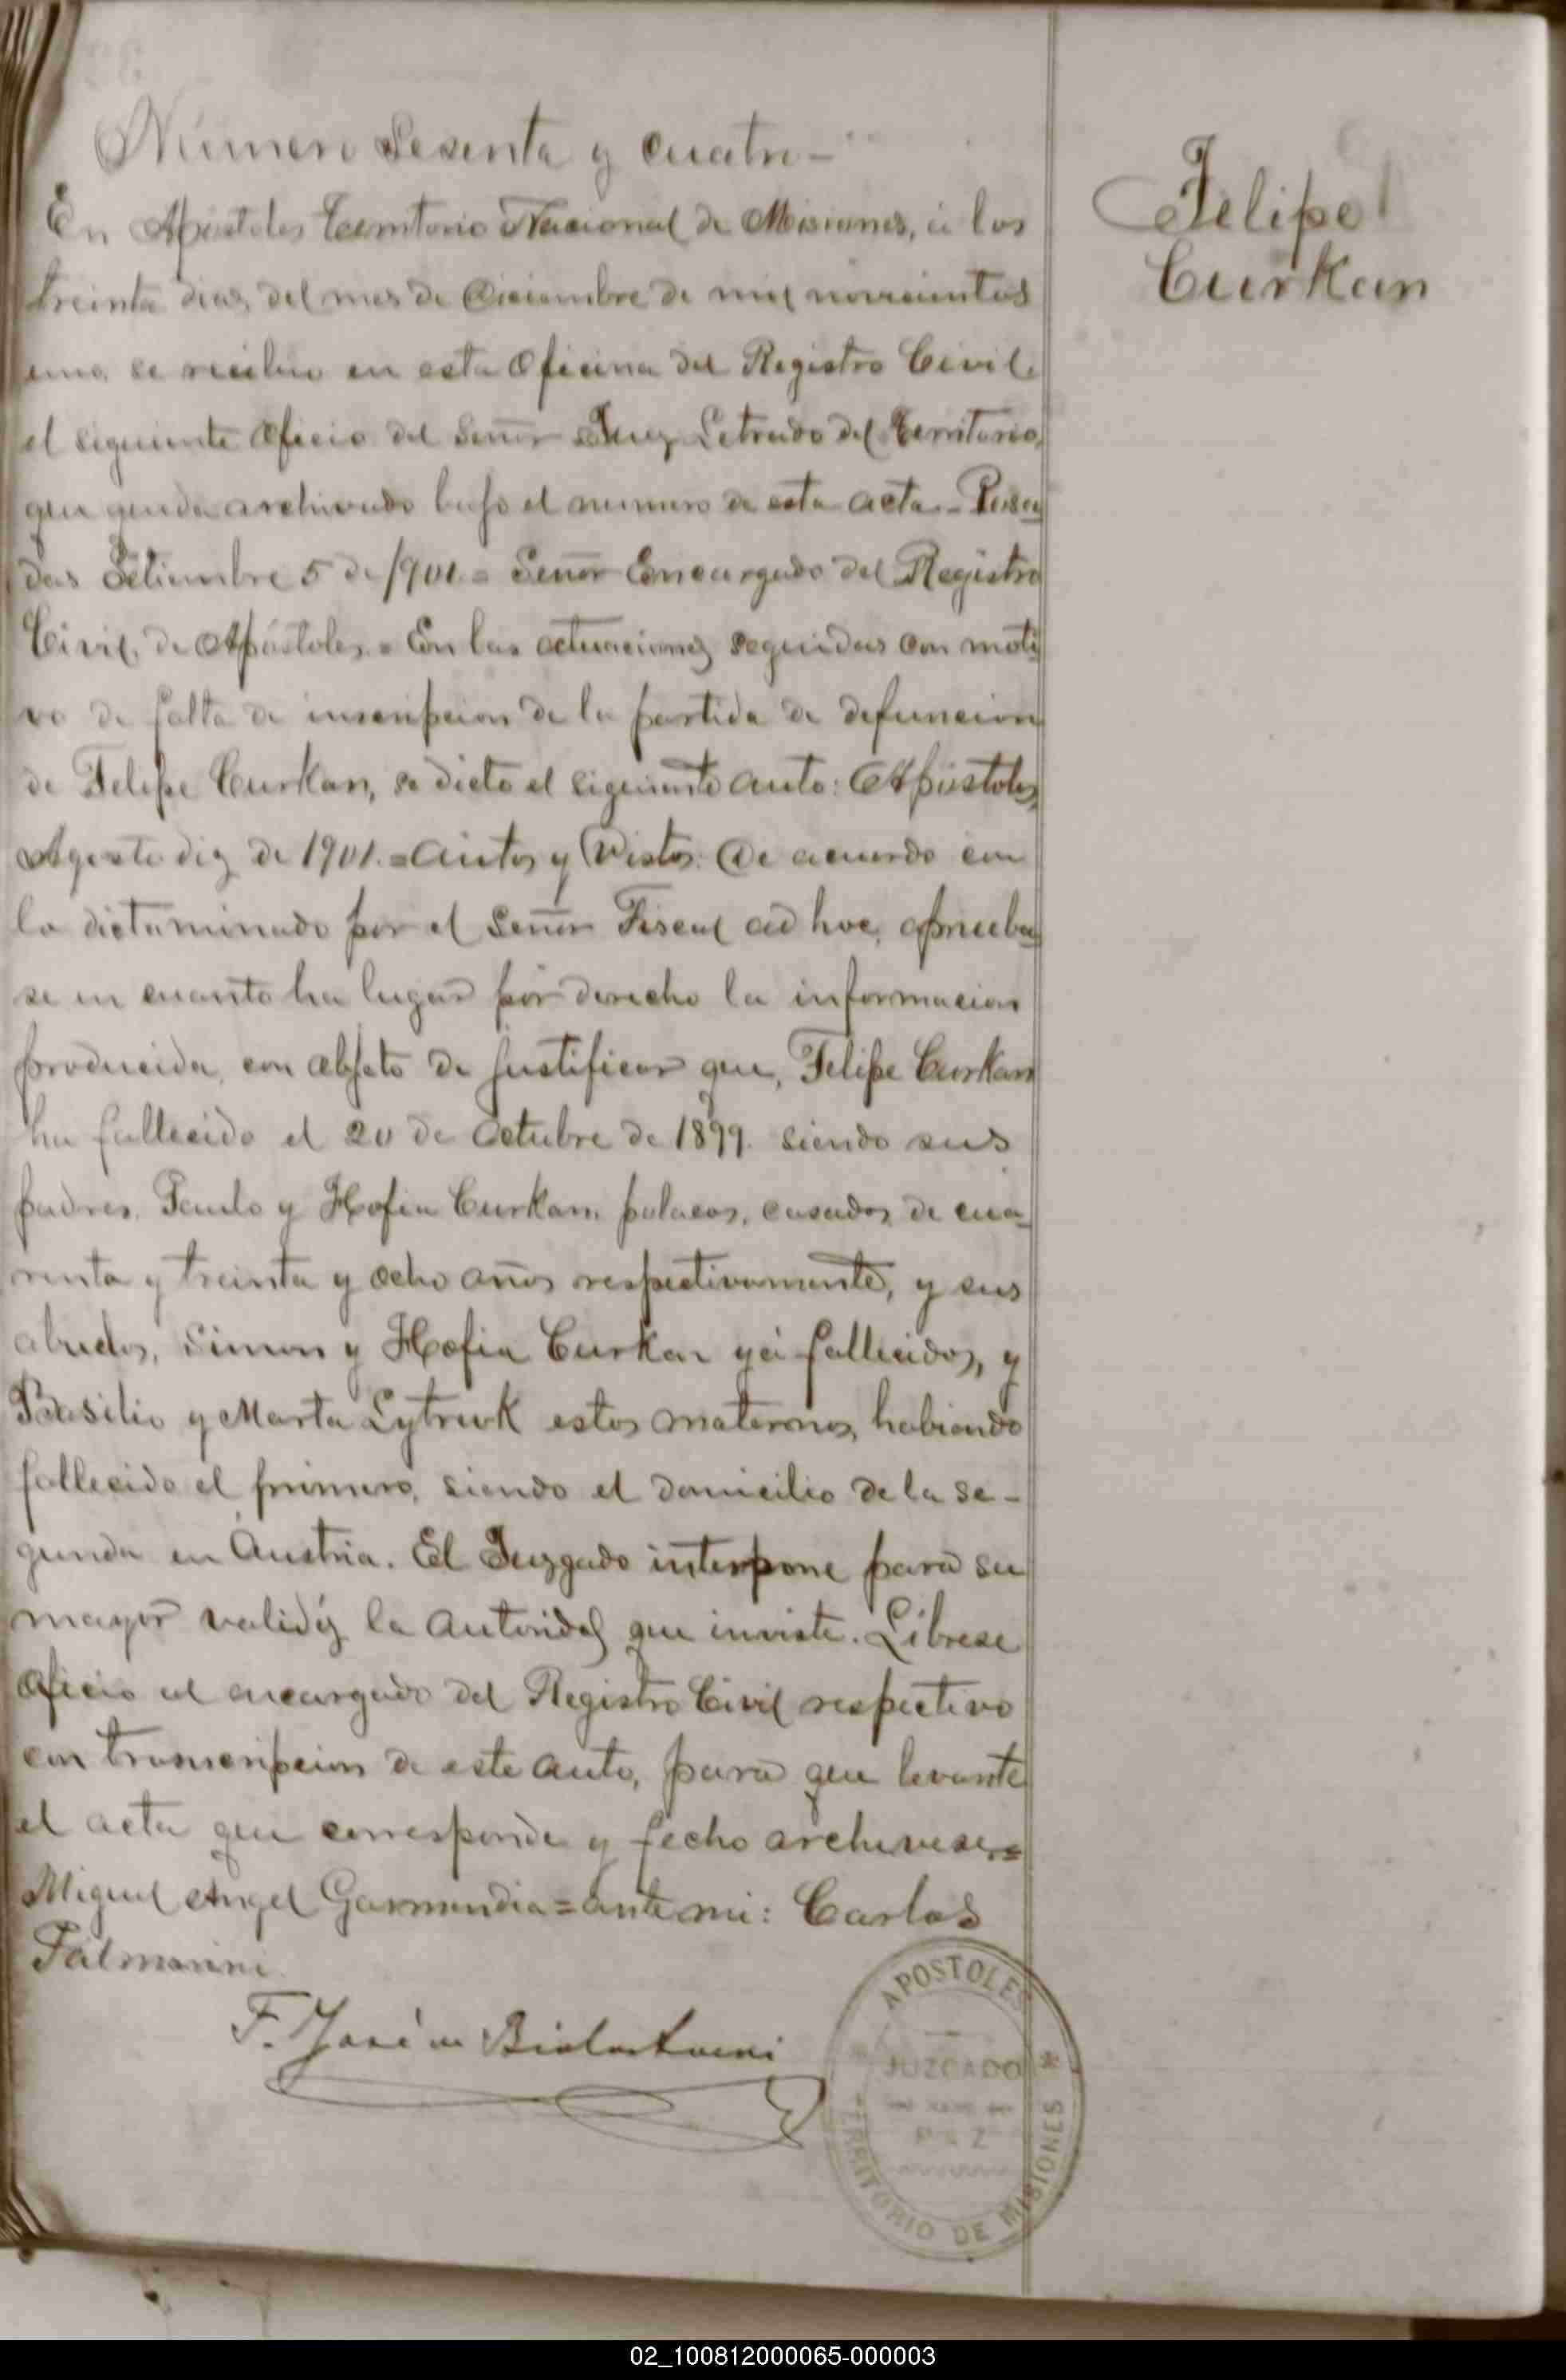 Número Sesenta y cuatro -
Felipe
Curkan
En Apóstoles Territorio Nacional de Misiones, á los
treinta dias, del mes de Diciembre de mil novecientos
uno, se recibio en esta Oficina del Registro Civil
el siguiente Oficio del Señor Juez Letrado del Territorio,
que queda archivado bajo el numero de esta acta.- Posa
das Setiembre 5 de 1901.= Señor Encargado del Registro
Civil, de Apóstoles.= En las actuaciones seguidas con moti
vo de falta de inscripcion de la partida de defuncion
de Felipe Curkan, se dicto el siguiente auto: Apóstoles,
Agosto diez de 1901.= Autos y Vistos: De acuerdo con
lo dictaminado por el Señor Fiscal ad hoc, aprueba
se en cuanto ha lugar por derecho la informacion
producida, con objeto de justificar que, Felipe Curkan
ha fallecido el 20 de Octubre de 1899. siendo sus
padres, Paulo y Hofia Curkan, polacos, casados, de cua-
renta y treinta y ocho años respectivamente, y sus
abuelos, Simon y Hofia Curkan yá fallecidos, y
Basilio y Marta Lytruk estos maternos, habiendo
fallecido el primero, siendo el domicilio de la se-
gunda en Austria. El Juzgado interpone para su
mayor validéz la autoridad que inviste. Librese
oficio al encargado del Registro Civil respectivo
con transcripcion de este auto, para que levante
el acta que corresponde y fecho archivese.=
Miguel Angel Garmendia = ante mi: Carlos
Palmarini.
F. José
APOSTOLES
JUZGADO
DE
PAZ
TERRITORIO DE MISIONES
02_100812000065-000003